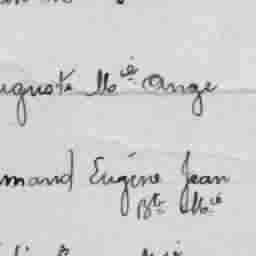 uguste Mie Ange
mand Eugène Jean
Bte Mie